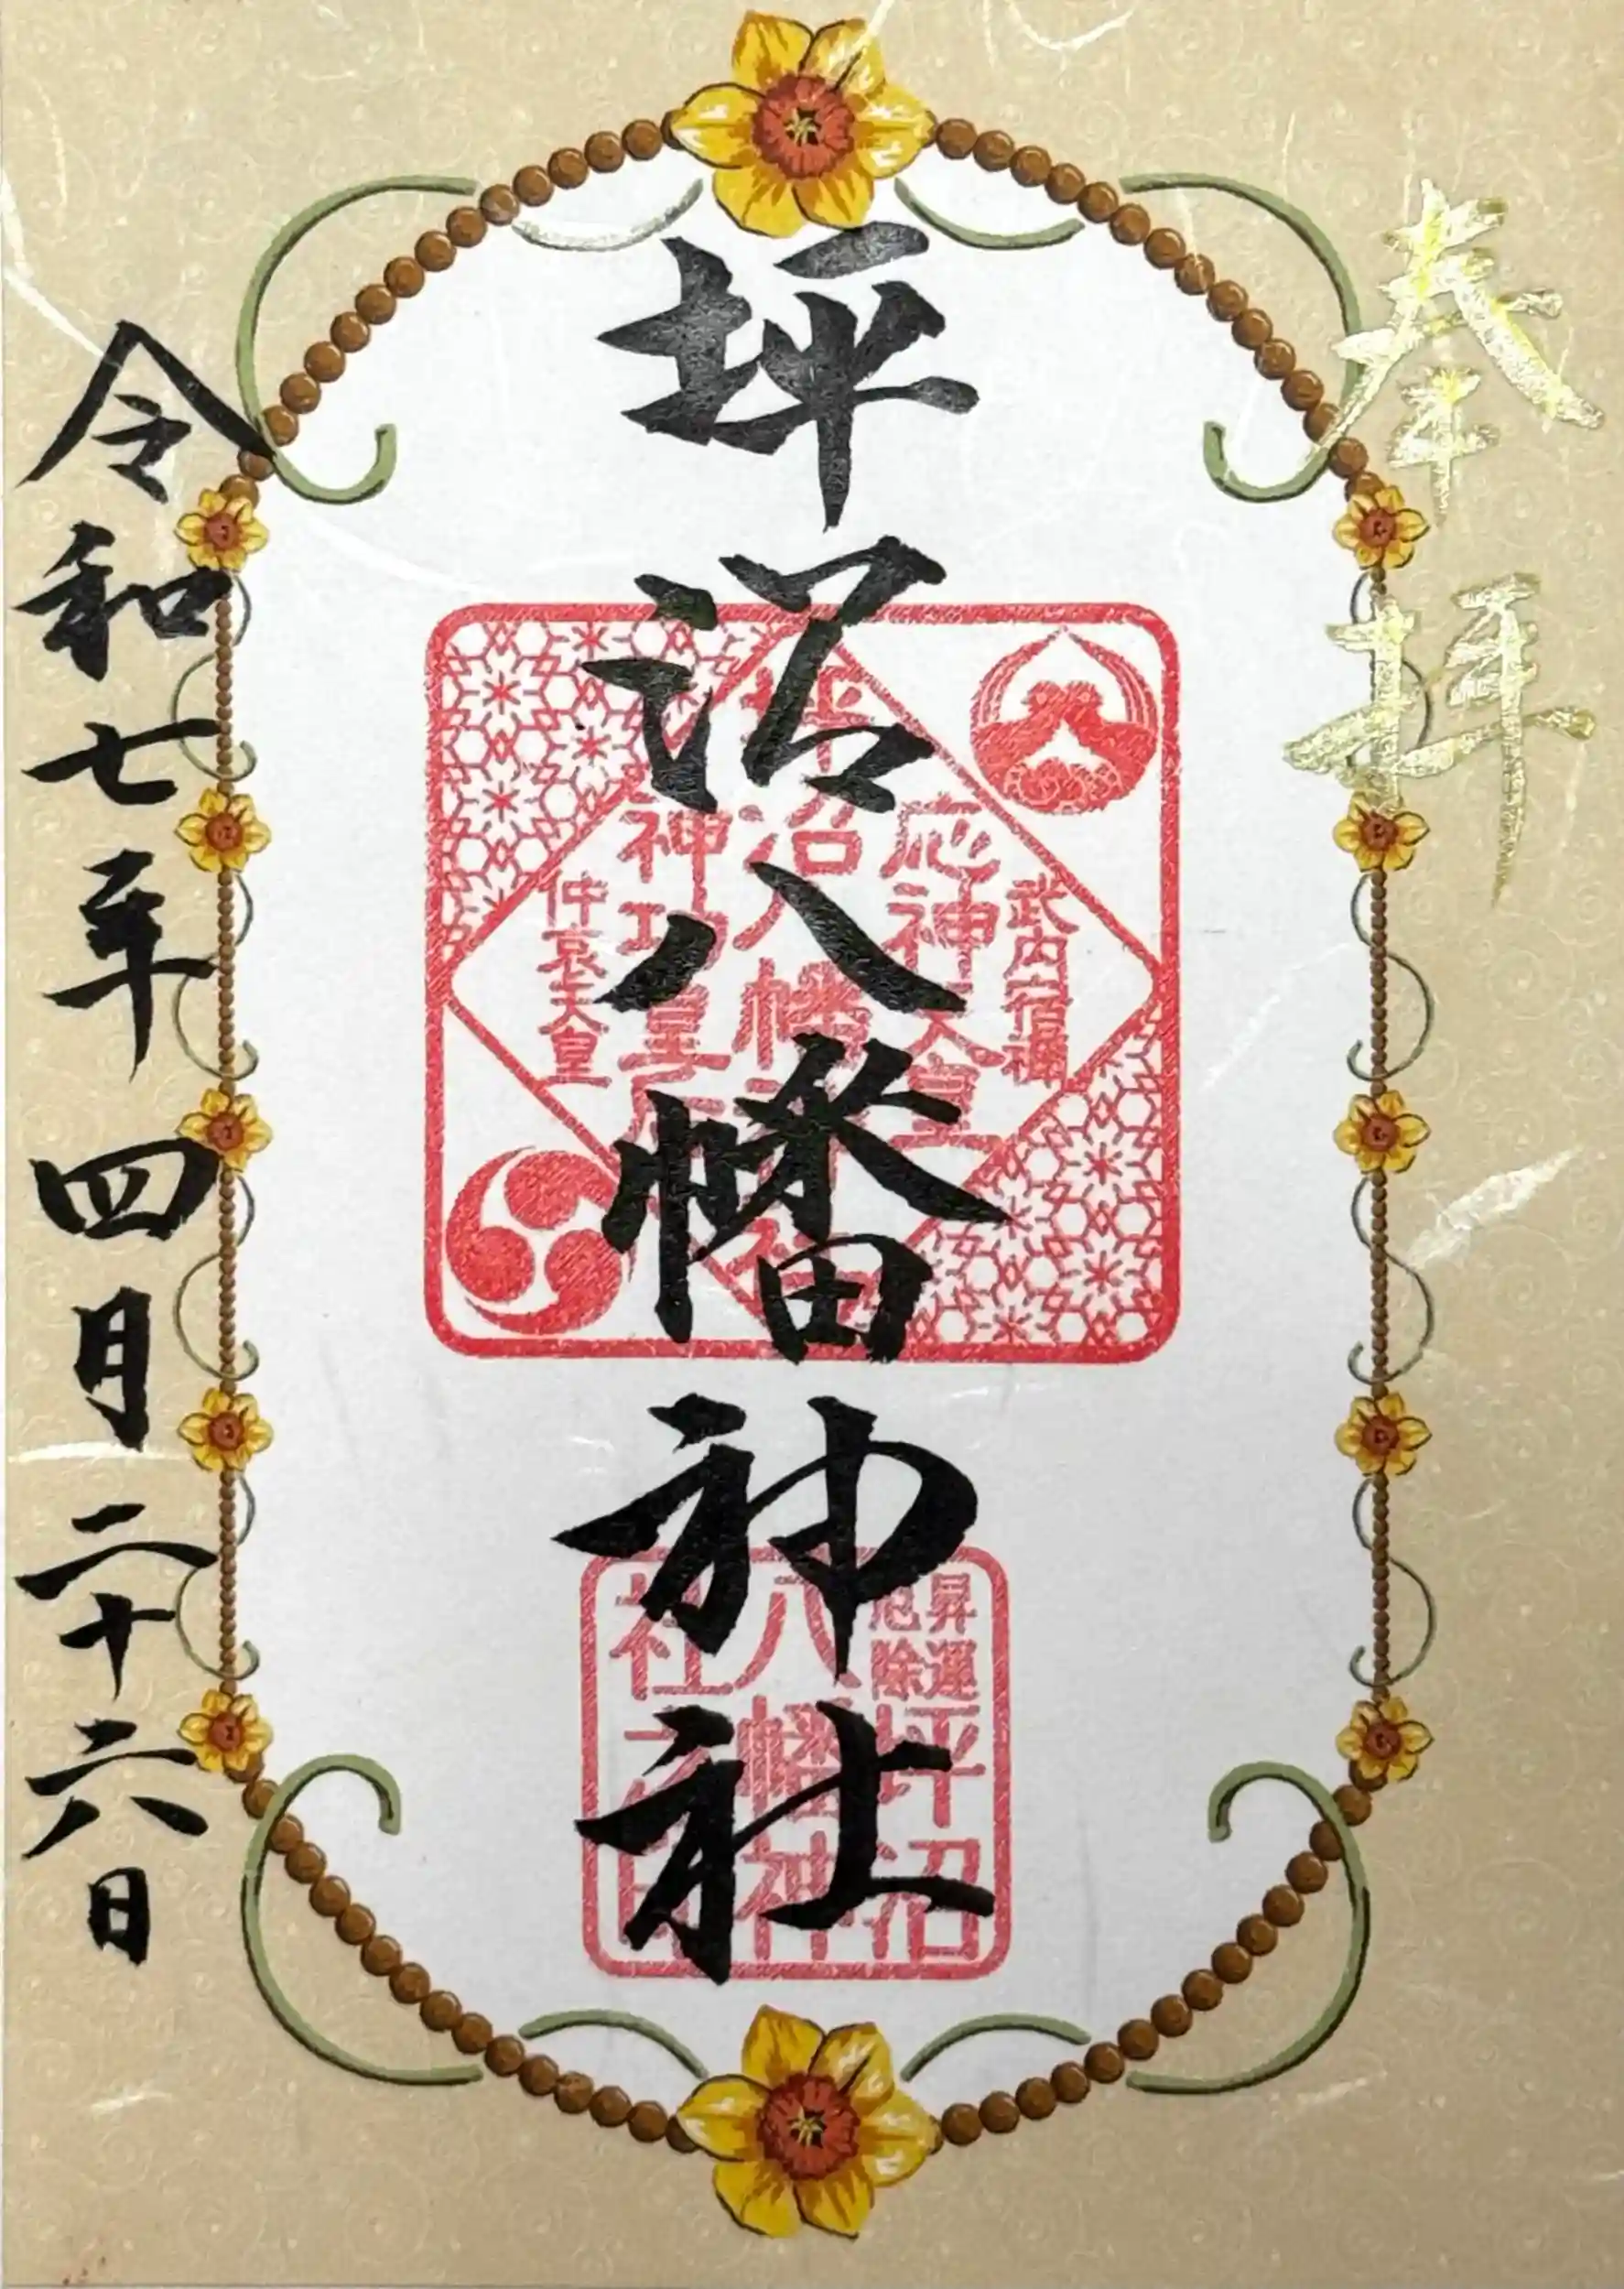 奉拝
坪沼八幡神社
武内宿禰
応神天皇
坪沼八幡神社
神功皇后
仲哀天皇
昇運
厄除
坪沼
八幡神
社
令和七年四月二十六日